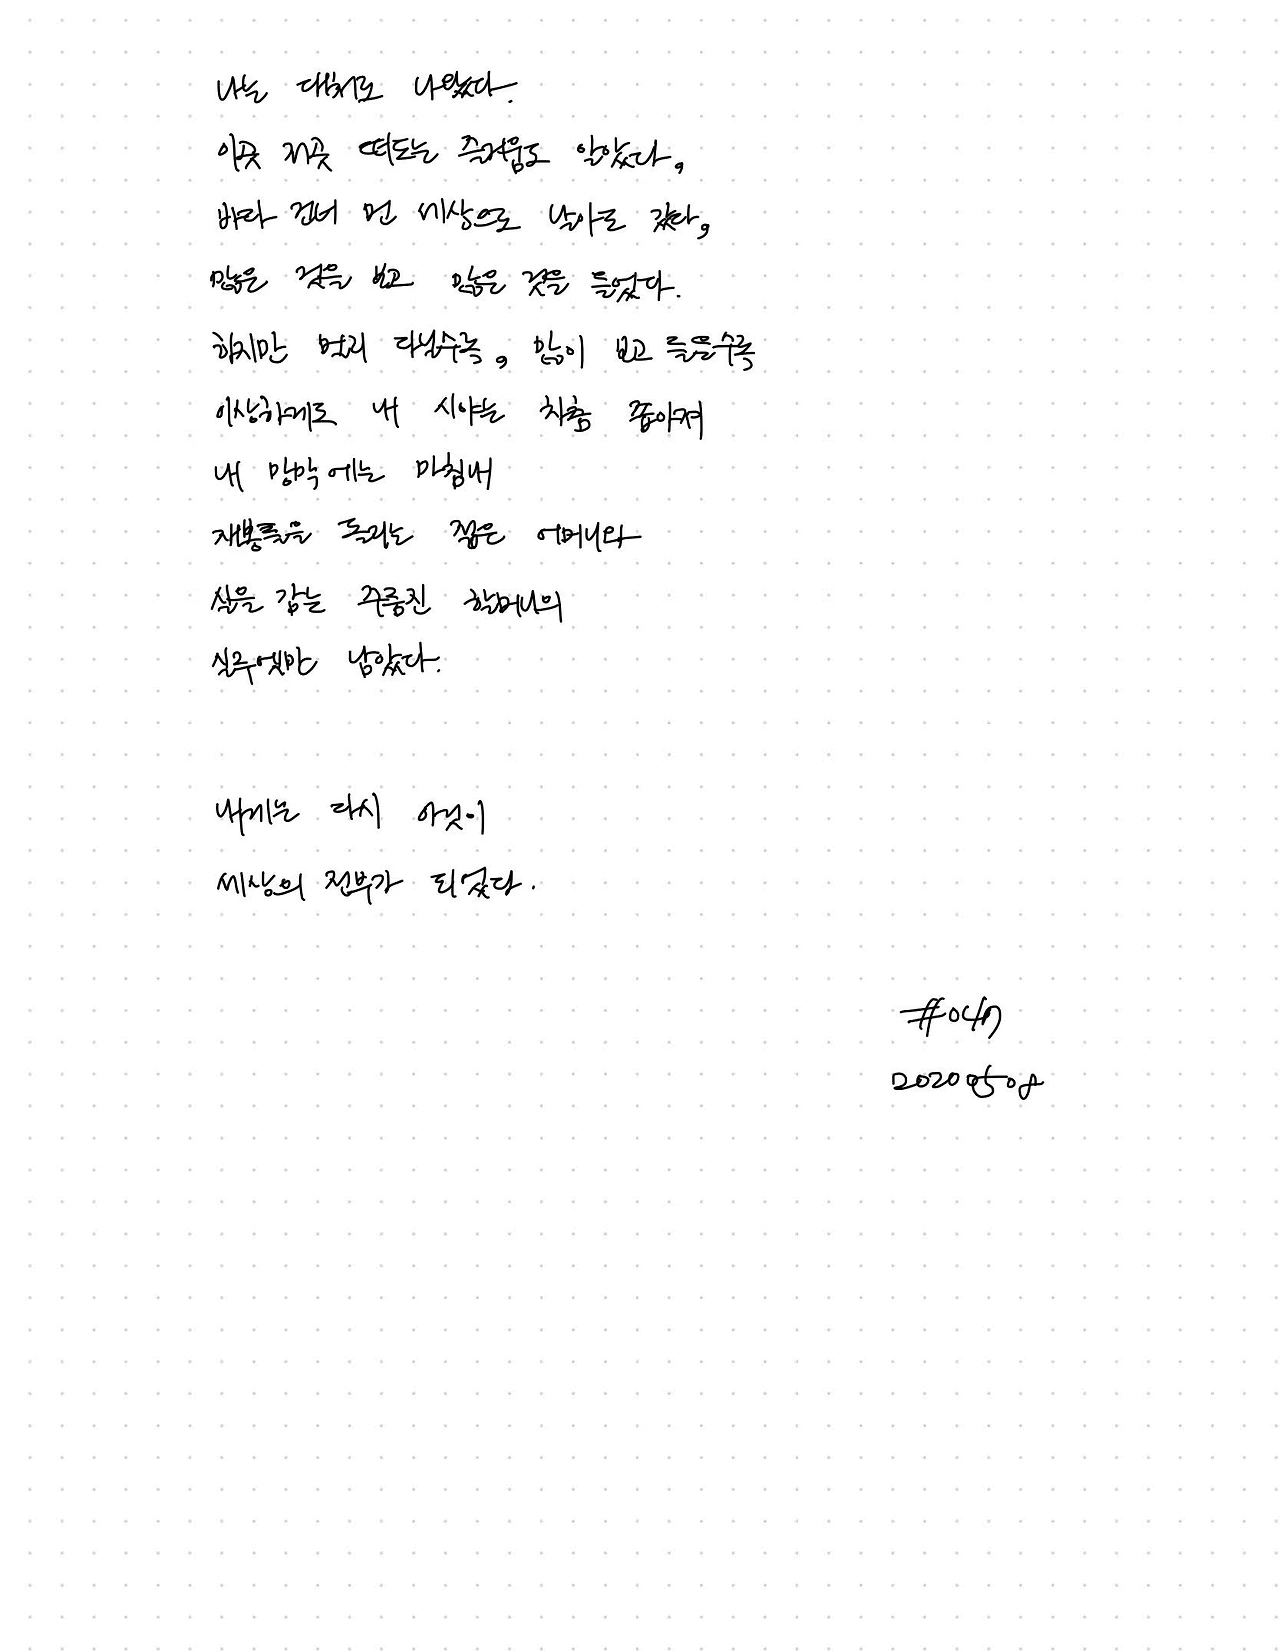 나는 대처로 나왔다.
이곳 저곳 떠도는 즐거움도 알았다,
바다 건너 먼 세상으로 날아도 갔다,
많은 것을 보고 많은 것을 들었다.
하지만 멀리 다닐수록, 많이 보고 들을수록
이상하게도 내 시야는 차츰 좁아져
내 망막에는 마침내
재봉틀을 돌리는 젊은 어머니와
실을 감는 주름진 할머니의
실루엣만 남았다.
내게는 다시 이것이
세상의 전부가 되었다.
#047
20200508